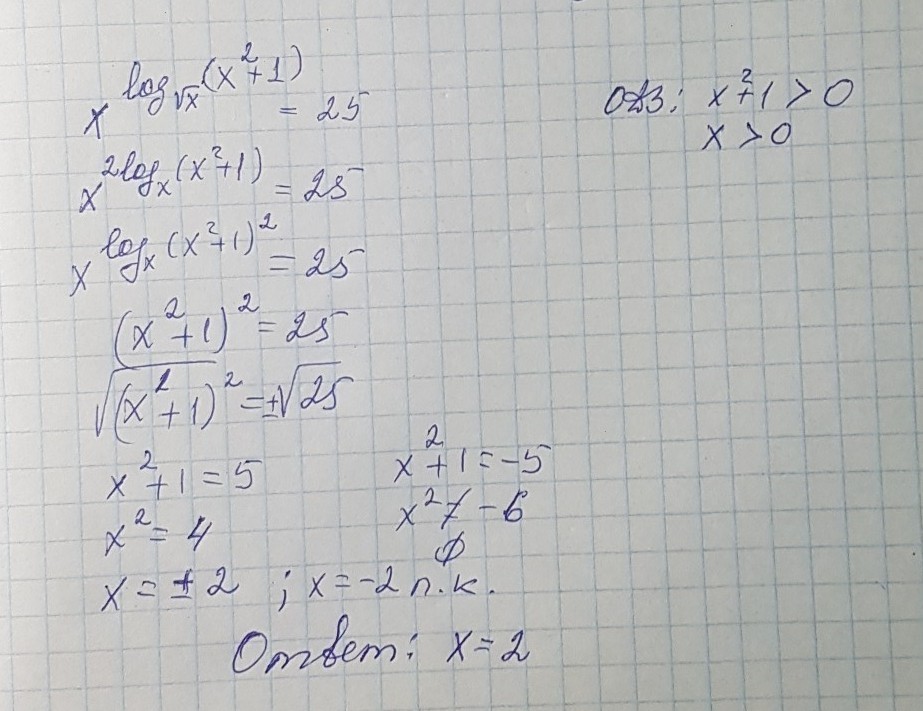 x^{log_{√x}(x²+1)} = 25
ОДЗ: x²+1 > 0
x > 0
x^{2log_x(x²+1)} = 25
x^{log_x(x²+1)²} = 25
(x²+1)² = 25
√(x²+1)² = ±√25
x²+1 = 5
x² = 4
x²+1 = -5
x² ≠ -6
∅
x = ±2 ; x = -2 п.к.
Ответ: x = 2